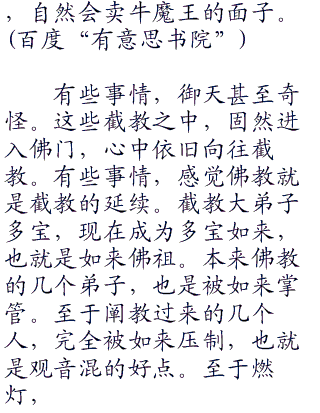 ，自然会卖牛魔王的面子。
(百度“有意思书院”)
有些事情，御天甚至奇
怪。这些截教之中，固然进
入佛门，心中依旧向往截
教。有些事情，感觉佛教就
是截教的延续。截教大弟子
多宝，现在成为多宝如来，
也就是如来佛祖。本来佛教
的几个弟子，也是被如来掌
管。至于阐教过来的几个
人，完全被如来压制，也就
是观音混的好点。至于燃
灯，